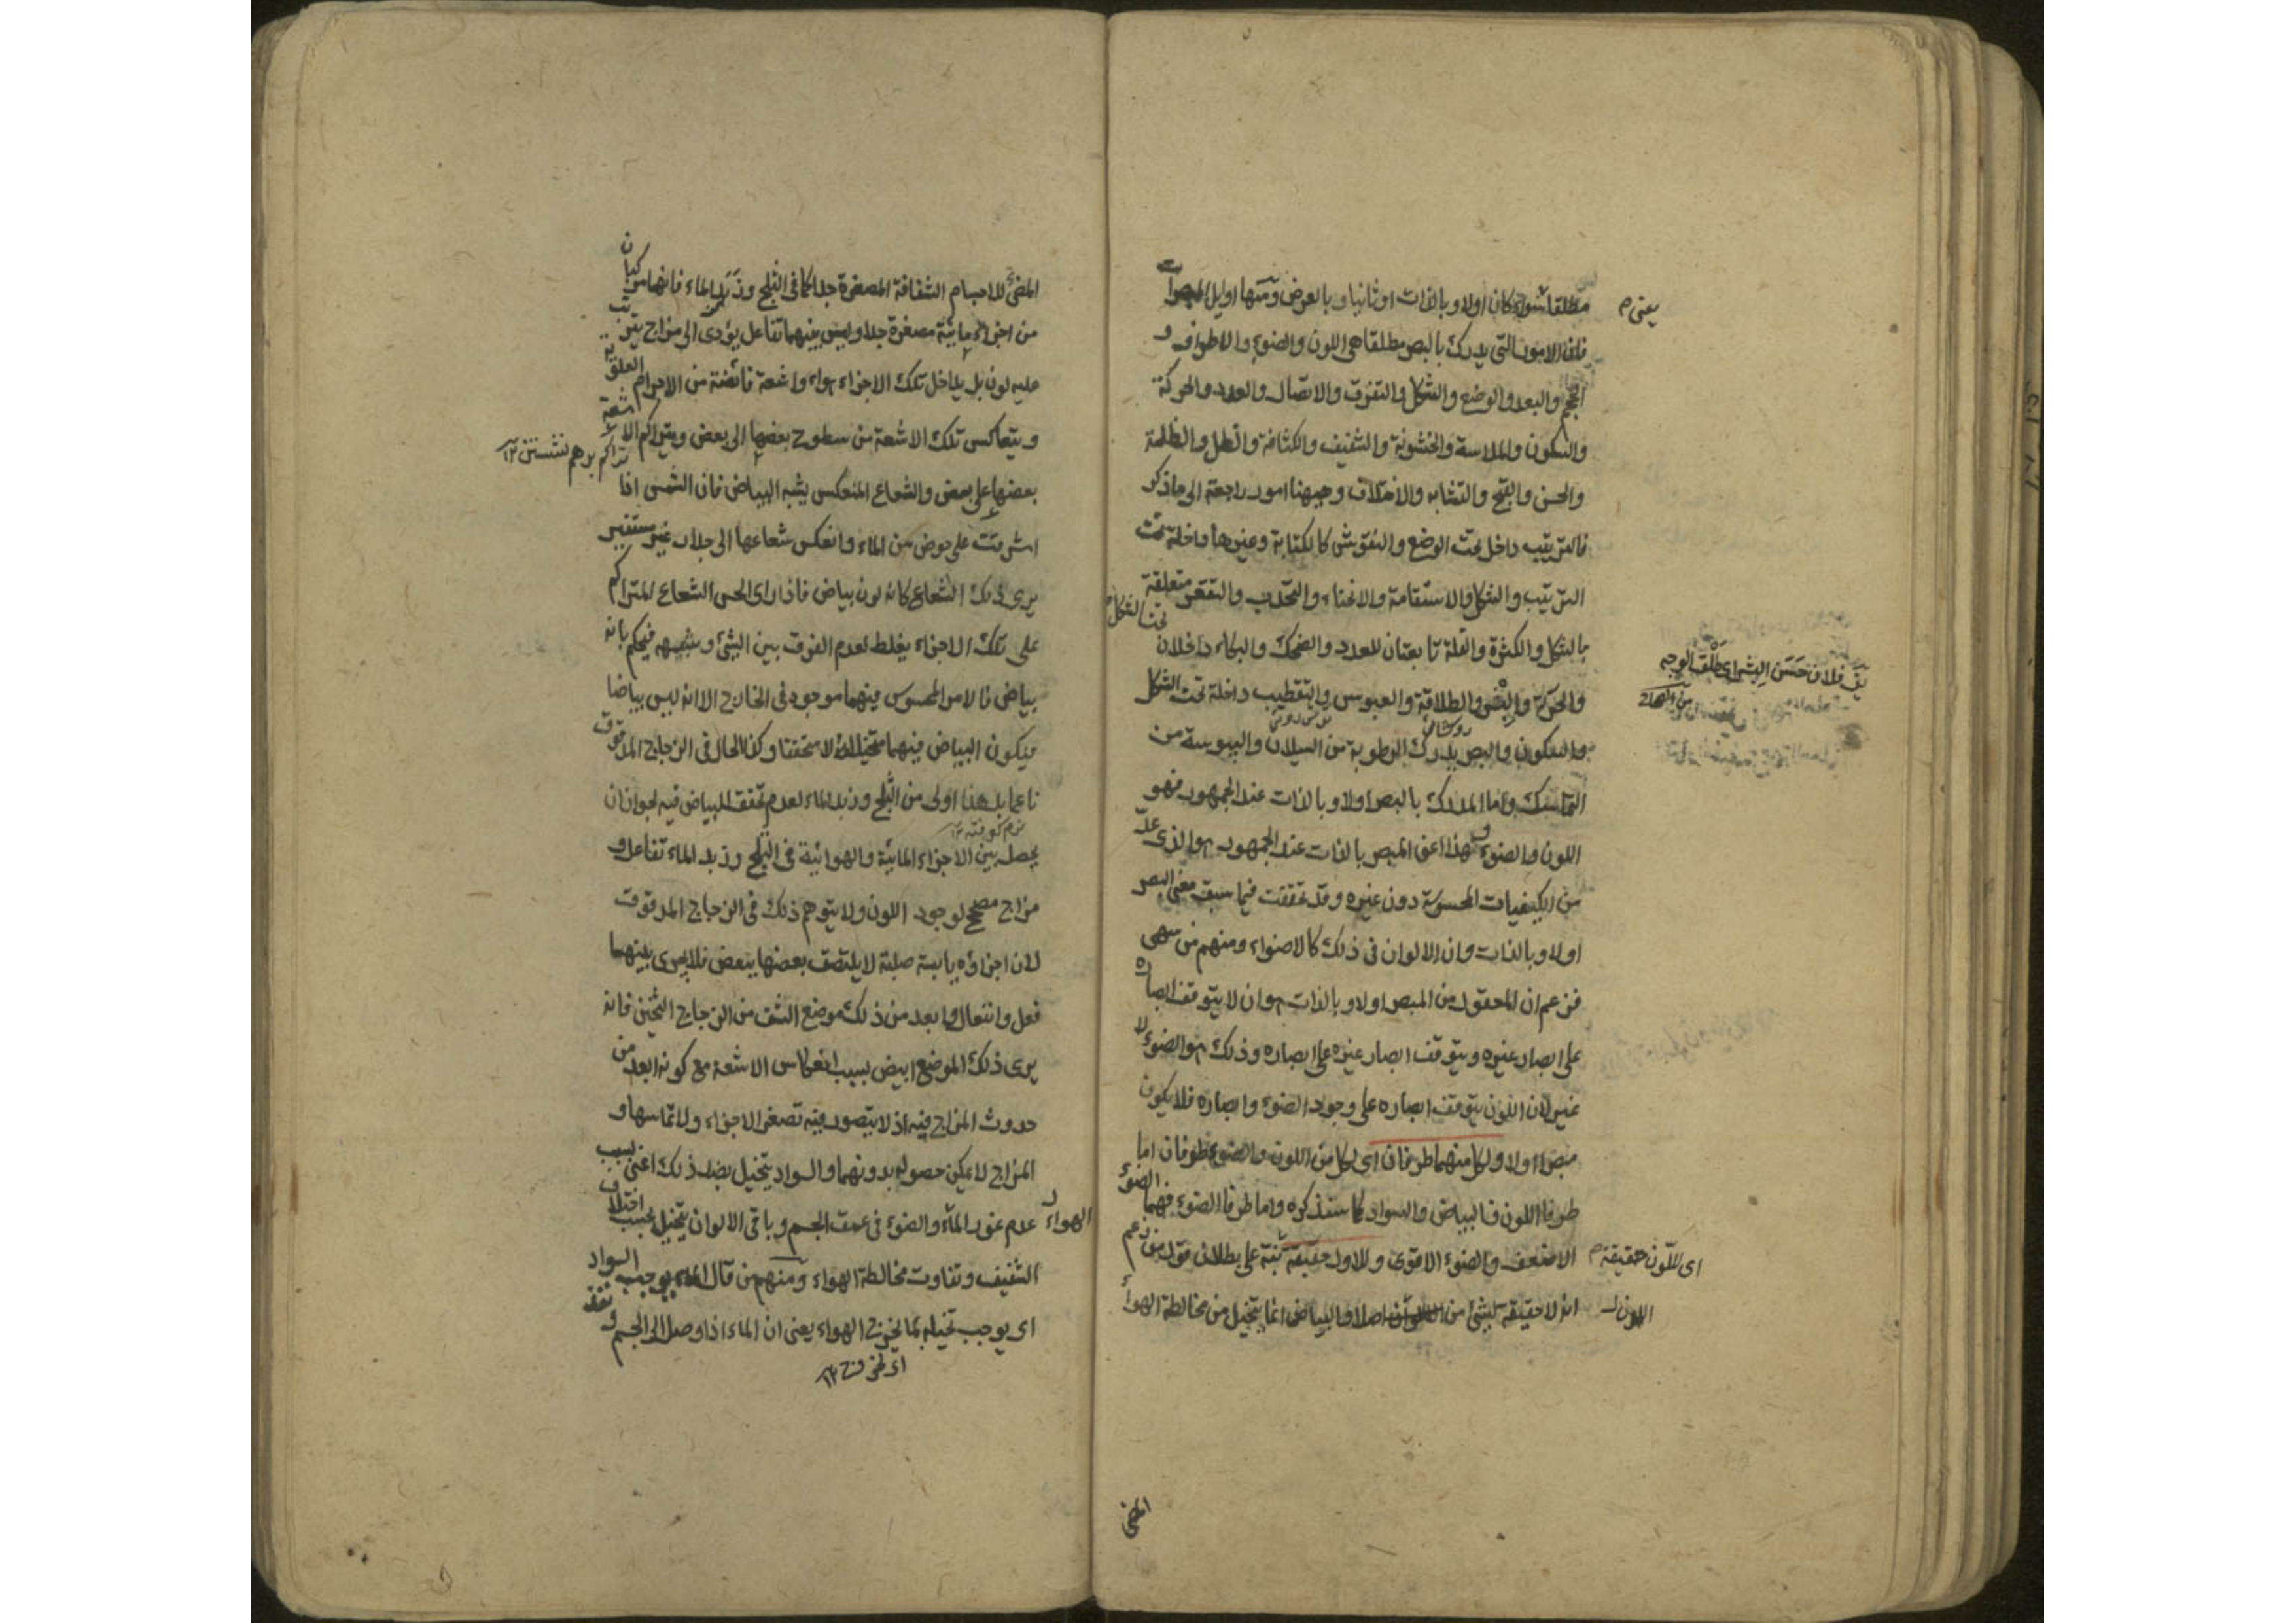 مطلقا سواء كان اولا وبالذات او ثانيا وبالعرض ومنها اوايل المبصرات
يعنى م
فان الامور التى يدرك بالبصر مطلقا هى اللون والضوء والاطراف و
الحجم والبعد والوضع والشكل والتفرق والاتصال والعدد والحركة
والسكون والملاسة والخشونة والشفيف والكثافة والظل والظلمة
والحسن والقبح والتشابه والاختلاف وههنا امور راجعة الى ما ذكر
فالترتيب داخل تحت الوضع والنقوش كالكتابة وغيرها داخلة تحت
الترتيب والشكل والاستقامة والانحناء والتحدب والتقعر متعلقة
تحت الشكل
بالشكل والكثرة والقلة تابعتان للعدد والضحك والبكاء داخلان
يق فلان حسن البشر اى طلق الوجه
والحركة والبشر والطلاقة والعبوس والتقطيب داخلة تحت الشكل
والسكون والبصر يدرك الرطوبة من السيلان واليبوسة من
التماسك واما المدرك بالبصر اولا وبالذات عند الجمهور فهو
اللون والضوء وهذا اعنى المبصر بالذات عند الجمهور هو الذى عد
من الكيفيات المحسوسة دون غيره وقد تحققت فيما سبق معنى البصر
اولا وبالذات وان الالوان فى ذلك كالاضواء ومنهم من سهى
فزعم ان المحقول من المبصر اولا وبالذات هو ان لا يتوقف ابصاره
على ابصار غيره ويتوقف ابصار غيره على ابصاره وذلك هو الضوء لا
غير لان اللون يتوقف ابصاره على وجود الضوء وابصاره فلا يكون
مبصرا اولا ولكل منهما طرفان اى لكل من اللون والضوء طرفان اما
طرفا اللون فالبياض والسواد كما سنذكره واما طرفا الضوء فهما الضوء
الاضعف والضوء الاقوى وللاول حقيقة نبه على بطلان قول من زعم
اى للون حقيقة م
انه لا حقيقة لشئ من الالوان اصلا والبياض انما يتخيل من مخالطة الهواء
اللون
المضئ
المضئ للاجسام الشفافة المصغرة جدا كما فى الثلج وزبد الماء فانهما مركبان
من اجزاء مائية مصغرة جدا وليس بينهما تفاعل يؤدى الى مزاج يترتب
عليه لون بل يداخل تلك الاجزاء هواء واشعة فائضة من الاجرام العلوية
ويتعاكس تلك الاشعة من سطوح بعضها الى بعض ويتراكم الاشعة
تراكم برهم نشستن ١٢
بعضها على بعض والشعاع المنعكس يشبه البياض فان الشمس اذا
اشرقت على حوض من الماء وانعكس شعاعها الى جدار غير مستنير
يرى ذلك الشعاع كانه لون بياض فاذا راى الحس الشعاع المتراكم
على تلك الاجزاء يغلط لعدم الفرق بين الشئ وشبهه فيحكم بانه
بياض فالامر المحسوس فيهما موجود فى الخارج الا انه ليس بياضا
فيكون البياض فيهما متخيلا لا متحققا وكذا الحال فى الزجاج المدقوق
ناعما بل هذا اولى من الثلج وزبد الماء لعدم تحقق البياض فيه لجواز ان
نرم كوفته ١٢
يحصل بين الاجزاء المائية والهوائية فى الثلج وزبد الماء تفاعل و
مزاج مصحح لوجود اللون ولا يتوهم ذلك فى الزجاج المدقوق
لان اجزاؤه يابسة صلبة لا يلتصق بعضها ببعض فلا يجرى بينهما
فعل وانفعال وابعد من ذلك موضع الشق من الزجاج الثخين فانه
يرى ذلك الموضع ابيض بسبب انعكاس الاشعة مع كونه ابعد من
حدوث المزاج فيه اذ لا يتصور فيه تصغر الاجزاء ولا تماسها و
المزاج لا يمكن حصوله بدونهما والسواد يتخيل بضد ذلك اعنى بسبب
عدم غور الماء والضوء فى عمق الجسم وباقى الالوان يتخيل بحسب اختلاف
الهواء
الشفيف وتفاوت مخالطة الهواء ومنهم من قال الماء يوجب السواد
اى يوجب تخيله لما يخرج الهواء يعنى ان الماء اذا وصل الى الجسم ونفذ